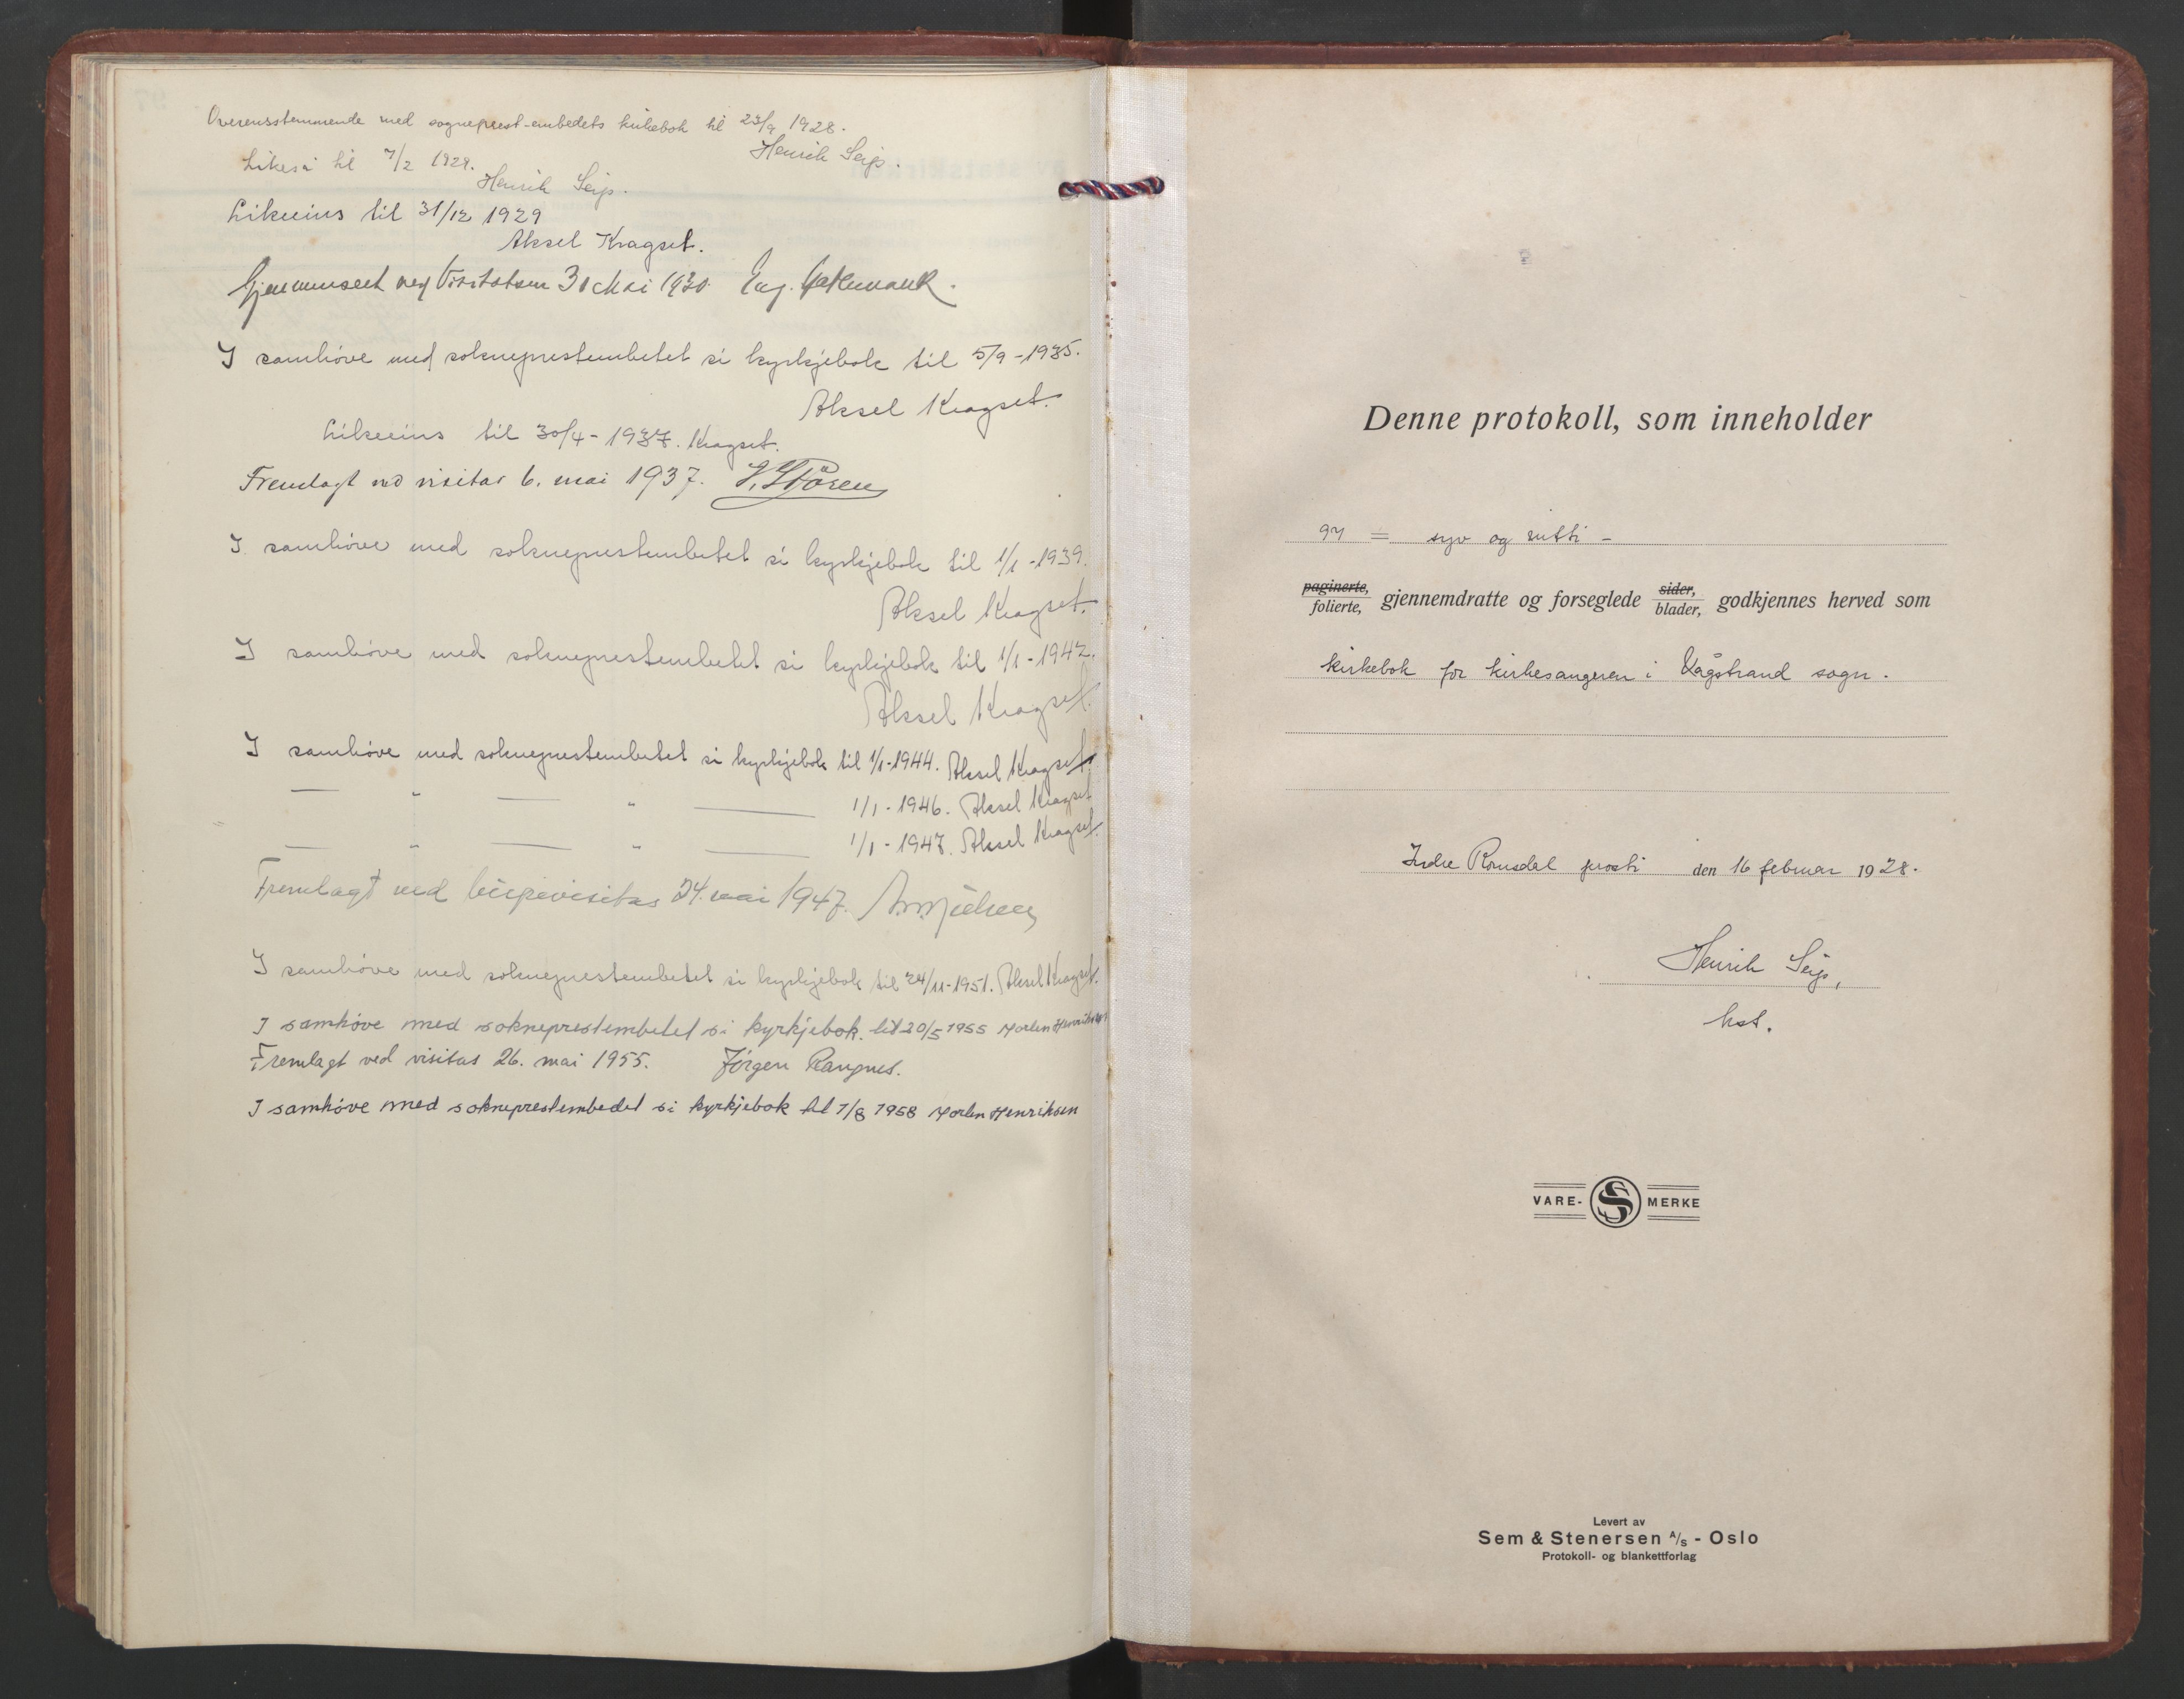 Overensstemmende med sogneprest-embedets kirkebok til 23/9 1928.
Henrik Seip.
Likeså til 7/2 1929.
Henrik Seip.
Likeeins til 31/12 1929
Aksel Kragset.
Gjennemseet ved Visitatsen 30 Mai 1930.
I samhöve med sokneprestembetet si kyrkjebok til 5/9-1935.
Aksel Kragset.
Likeeins til 30/4-1937. Kragset.
Fremlagt ved visitas 6. mai 1937. Støren
I samhöve med sokneprestembetet si kyrkjebok til 1/1-1939.
Aksel Kragset.
I samhöve med sokneprestembetet si kyrkjebok til 1/1-1942.
Aksel Kragset.
I samhöve med sokneprestembetet si kyrkjebok til 1/1-1944. Aksel Kragset.
— " — " — 1/1-1946. Aksel Kragset
— " — " — 1/1-1947. Aksel Kragset.
Fremlagt ved bispevisitas 24. mai 1947.
I samhöve med sokneprestembetet si kyrkjebok til 24/11-1951. Aksel Kragset.
I samhöve med sokneprestembetet si kyrkjebok til 20/5 1955 Morten Henriksen
Fremlagt ved visitas 26. mai 1955. Jörgen
I samhöve med sokneprestembedet si kyrkjebok til 1/8 1958 Morten Henriksen
Denne protokoll, som inneholder
97 = syv og nitti -
paginerte,
folierte, gjennemdratte og forseglede sider,
blader, godkjennes herved som
kirkebok for kirkesangeren i Vågstrand sogn.
Indre Romsdal prosti den 16 februar 1928.
Henrik Seip,
kst.
VARE- S MERKE
Levert av
Sem & Stenersen A/S - Oslo
Protokoll- og blankettforlag